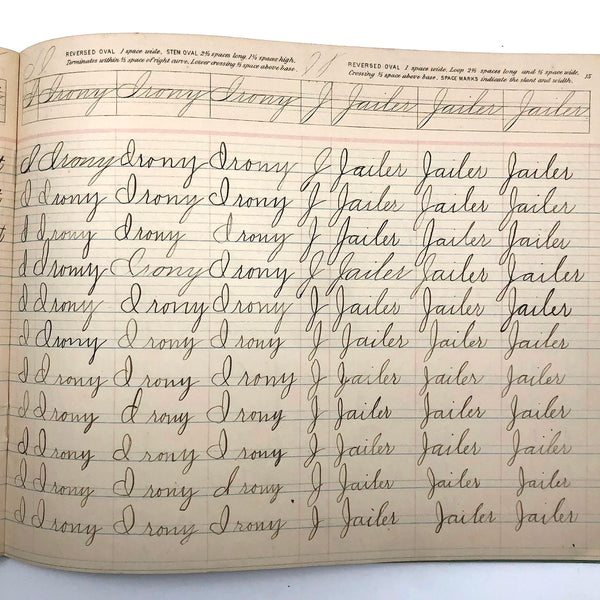 REVERSED OVAL 1 space wide. STEM OVAL 2⅔ spaces long, 1⅓ spaces high.
Terminates within ⅓ space of right curve, Lower crossing ⅓ space above base.
REVERSED OVAL 1 space wide. Loop 2⅔ spaces long and ½ space wide.
Crossing ⅓ space above base. SPACE MARKS indicate the slant and width.
15
I Irony Irony Irony J Jailer Jailer Jailer
I Irony Irony Irony J Jailer Jailer Jailer
I Irony Irony Irony J Jailer Jailer Jailer
I Irony Irony Irony J Jailer Jailer Jailer
I Irony Irony Irony J Jailer Jailer Jailer
I Irony Irony Irony J Jailer Jailer Jailer
I Irony Irony Irony J Jailer Jailer Jailer
I Irony Irony Irony J Jailer Jailer Jailer
I Irony Irony Irony J Jailer Jailer Jailer
I Irony Irony Irony J Jailer Jailer Jailer
I Irony Irony Irony J Jailer Jailer Jailer
I Irony Irony Irony J Jailer Jailer Jailer